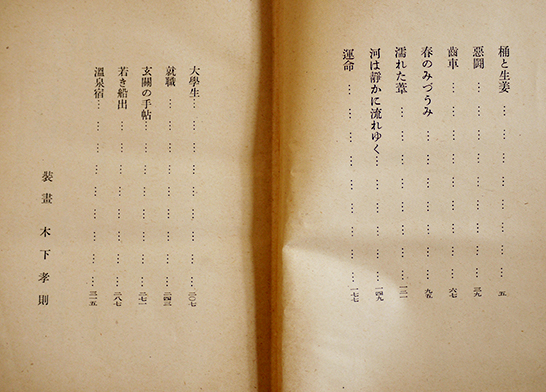 桶と生姜………………………五
惡鬪………………………三九
齒車………………………六七
春のみづうみ………………………九五
濡れた葦………………………一二一
河は靜かに流れゆく………………………一四九
運命………………………一七七
大學生………………………二〇七
就職………………………二四三
玄關の手帖………………………二七一
若き船出………………………二八七
溫泉宿………………………三一五
裝畫 木下孝則